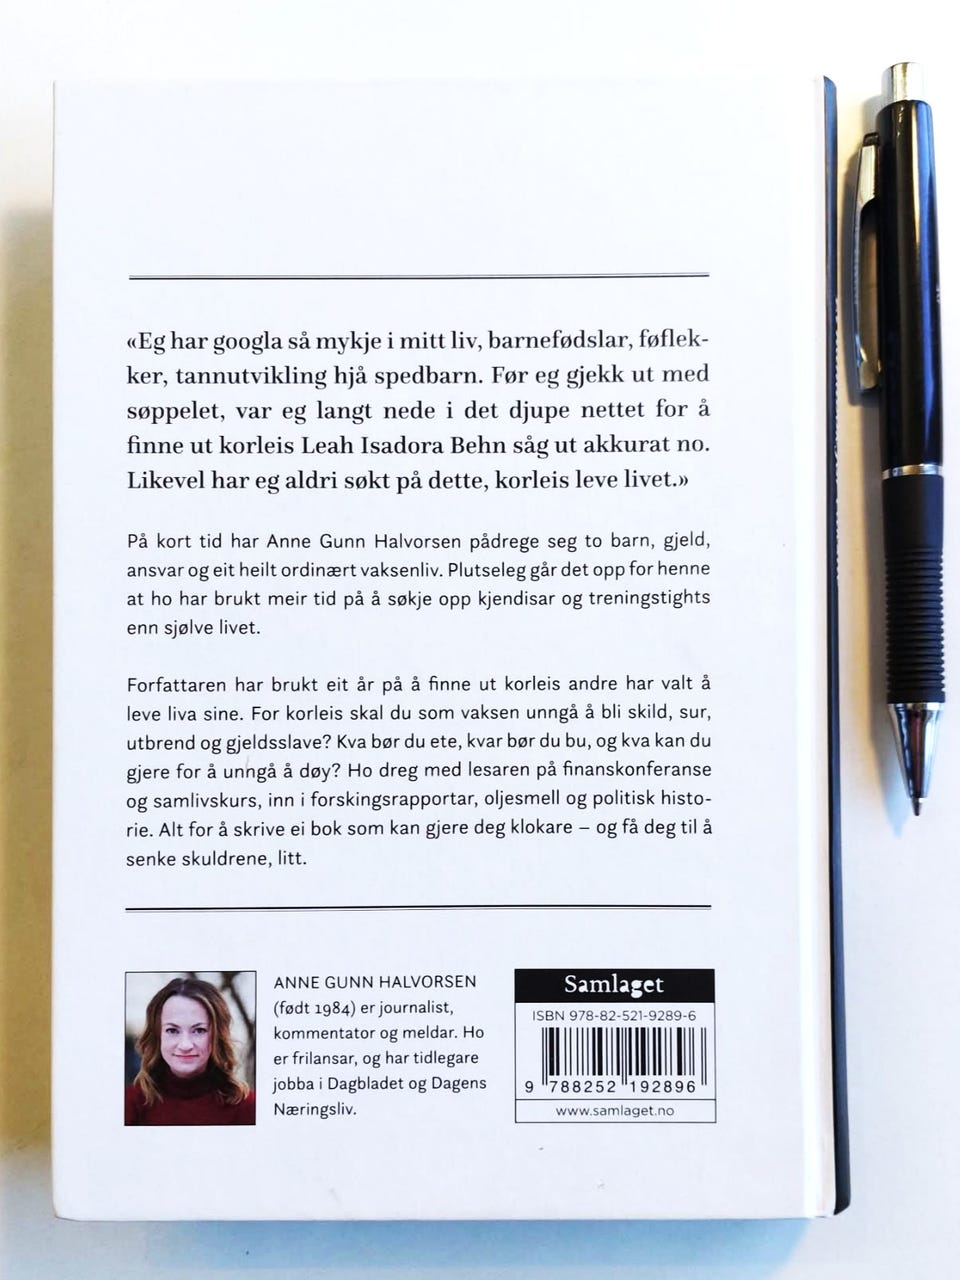 «Eg har googla så mykje i mitt liv, barnefødslar, føflek-
ker, tannutvikling hjå spedbarn. Før eg gjekk ut med
søppelet, var eg langt nede i det djupe nettet for å
finne ut korleis Leah Isadora Behn såg ut akkurat no.
Likevel har eg aldri søkt på dette, korleis leve livet.»
På kort tid har Anne Gunn Halvorsen pådrege seg to barn, gjeld,
ansvar og eit heilt ordinært vaksenliv. Plutseleg går det opp for henne
at ho har brukt meir tid på å søkje opp kjendisar og treningstights
enn sjølve livet.
Forfattaren har brukt eit år på å finne ut korleis andre har valt å
leve liva sine. For korleis skal du som vaksen unngå å bli skild, sur,
utbrend og gjeldsslave? Kva bør du ete, kvar bør du bu, og kva kan du
gjere for å unngå å døy? Ho dreg med lesaren på finanskonferanse
og samlivskurs, inn i forskingsrapportar, oljesmell og politisk histo-
rie. Alt for å skrive ei bok som kan gjere deg klokare – og få deg til å
senke skuldrene, litt.
ANNE GUNN HALVORSEN
(født 1984) er journalist,
kommentator og meldar. Ho
er frilansar, og har tidlegare
jobba i Dagbladet og Dagens
Næringsliv.
Samlaget
ISBN 978-82-521-9289-6
9 788252 192896
www.samlaget.no